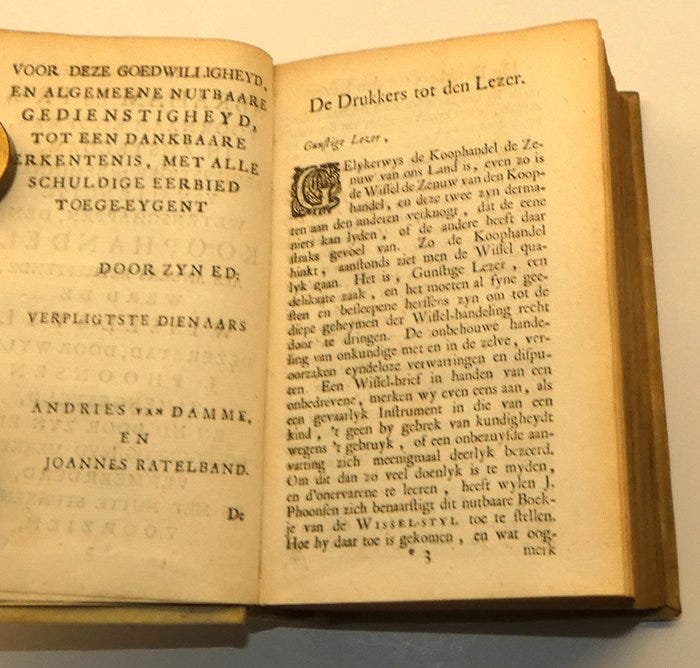 VOOR DEZE GOEDWILLIGHEYD,
EN ALGEMEENE NUTBAARE
GEDIENSTIGHEYD,
TOT EEN DANKBAARE
ERKENTENIS, MET ALLE
SCHULDIGE EERBIED
TOEGE-EYGENT
DOOR ZYN ED:
VERPLIGTSTE DIENAARS
ANDRIES VAN DAMME,
EN
JOANNES RATELBAND.
De
De Drukkers tot den Lezer.
Gunſtige Lezer,
GElykerwys de Koophandel de Ze-
nuw van ons Land is, even zo is
de Wiſſel de Zenuw van den Koop-
handel, en deze twee zyn derma-
ten aan den anderen verknogt, dat de eene
niets kan lyden, of de andere heeft daar
ſtraks gevoel van. Zo de Koophandel
hinkt, aanſtonds ziet men de Wiſſel qua-
lyk gaan. Het is, Gunſtige Lezer, een
delikaate zaak, en het moeten al fyne gee-
ſten en beſleepene herſſens zyn om tot de
diepe geheymen der Wiſſel-handeling recht
door te dringen. De onbehouwe hande-
ling van onkundige met en in de zelve, ver-
oorzaken eyndeloze verwarringen en diſpu-
ten. Een Wiſſel-brief in handen van een
onbedrevene, merken wy even eens aan, als
een gevaarlyk Inſtrument in die van een
kind, 't geen by gebrek van kundigheydt
wegens 't gebruyk, of een onbezuyſde aan-
vatting zich meenigmaal deerlyk bezeerd.
Om dit dan zo veel doenlyk is te myden,
en d'onervarene te leeren, heeft wylen J.
Phoonſen zich benaarſtigt dit nutbaare Boek-
je van de WISSEL-STYL toe te ſtellen.
Hoe hy daar toe is gekomen, en wat oog-
* 3 merk